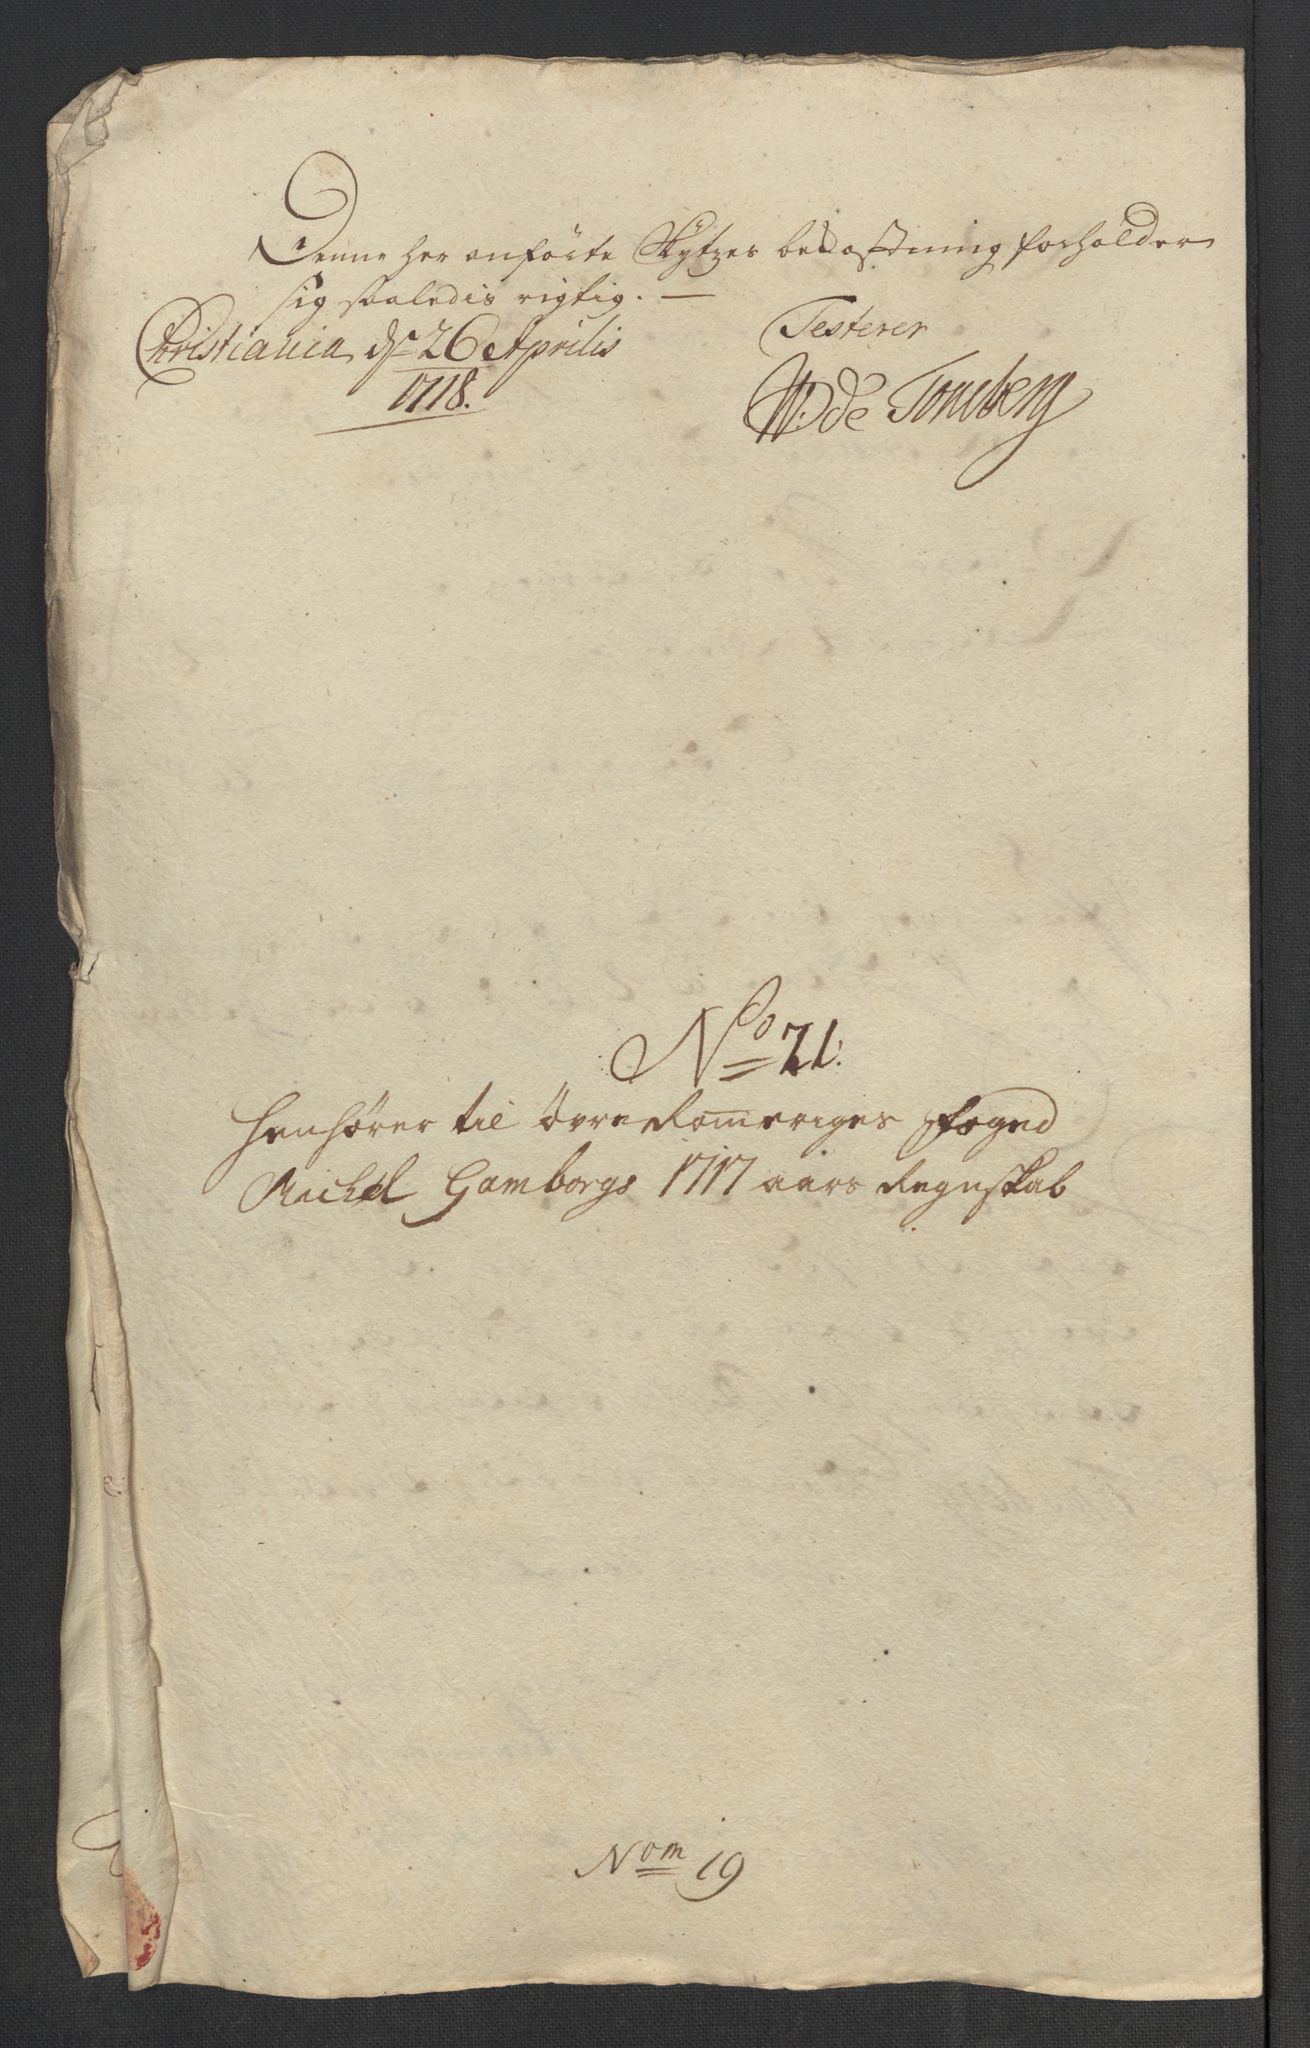 Denne her anförte Skytzes bekostning forholder
sig saaledis rigtig. —
Christiania dn 26 Aprilis
1718.
Testerer
W: de Tonsberg
No 21.
Henhörer til övre Romeriges Foged
Michel Gamborgs 1717 aars Regnskab
Nom 19